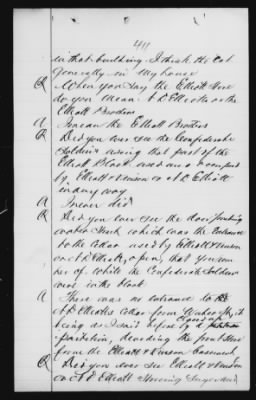 411
in that building. I think the Col
generally in his house
Q When you say the Elliott Store
do you mean A D Elliott or the
Elliott Brothers
A I mean the Elliott Brothers
Q Did you ever see the Confederate
Soldiers using that part of the
Elliott Block used and occupied
by Elliott & Vinson or A D Elliott
in any way
A I never did
Q Did you ever see the door fronting
on Water Street which was the entrance
to the Cellar used by Elliott & Vinson
or A D Elliott, open, that you
of while the Confederate Soldiers
were in the block
A There was no entrance to
A D Elliotts Cellar from Water St, it
being as I said before by a
close up
partition, dividing the front Store
from the Elliott & Vinson basement
Q Did you ever see Elliott & Vinson
or A D Elliott